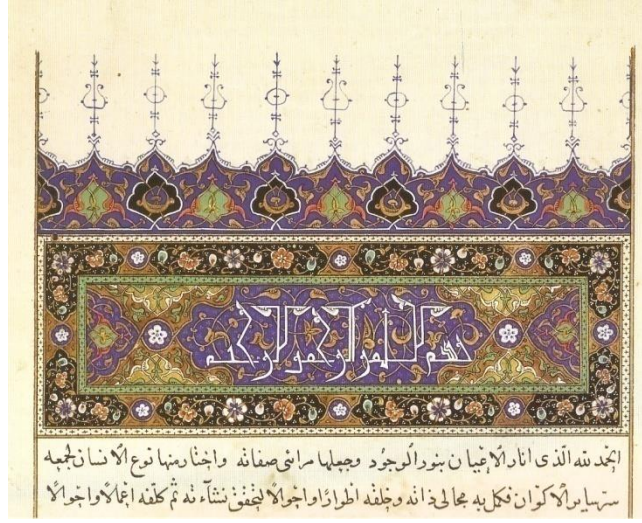 بسم الله الرحمن الرحيم
الحمد لله الذى انار الاعيان بنور الوجود وجعلها مرائى صفاته واختار منها نوع الانسان لجمعه
سر سائر الاكوان فكمل به مجالى ذاته وخلقه اطوارا واحوالا لتحقق نشآءته ثم كلفه اعمالا واحوالا